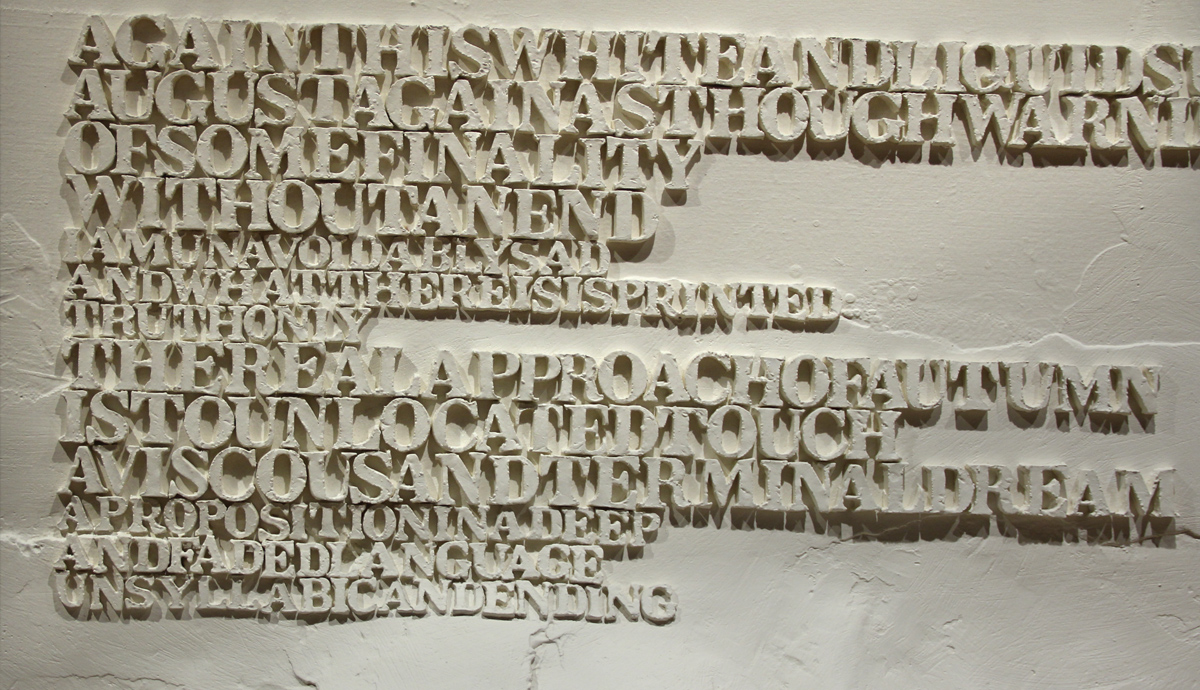 AGAINTHISWHITEANDLIQUIDS
AUGUSTAGAINASTHOUGHWARNI
OFSOMEFINALITY
WITHOUTANEND
IAMUNAVOIDABLYSAD
ANDWHATTHEREISISPRINTED
TRUTHONLY
THEREALAPPROACHOFAUTUMN
ISTOUNLOCATEDTOUCH
AVISCOUSANDTERMINALDREAM
APROPOSITIONINADEEP
ANDFADEDLANGUAGE
UNSYLLABICANDENDING